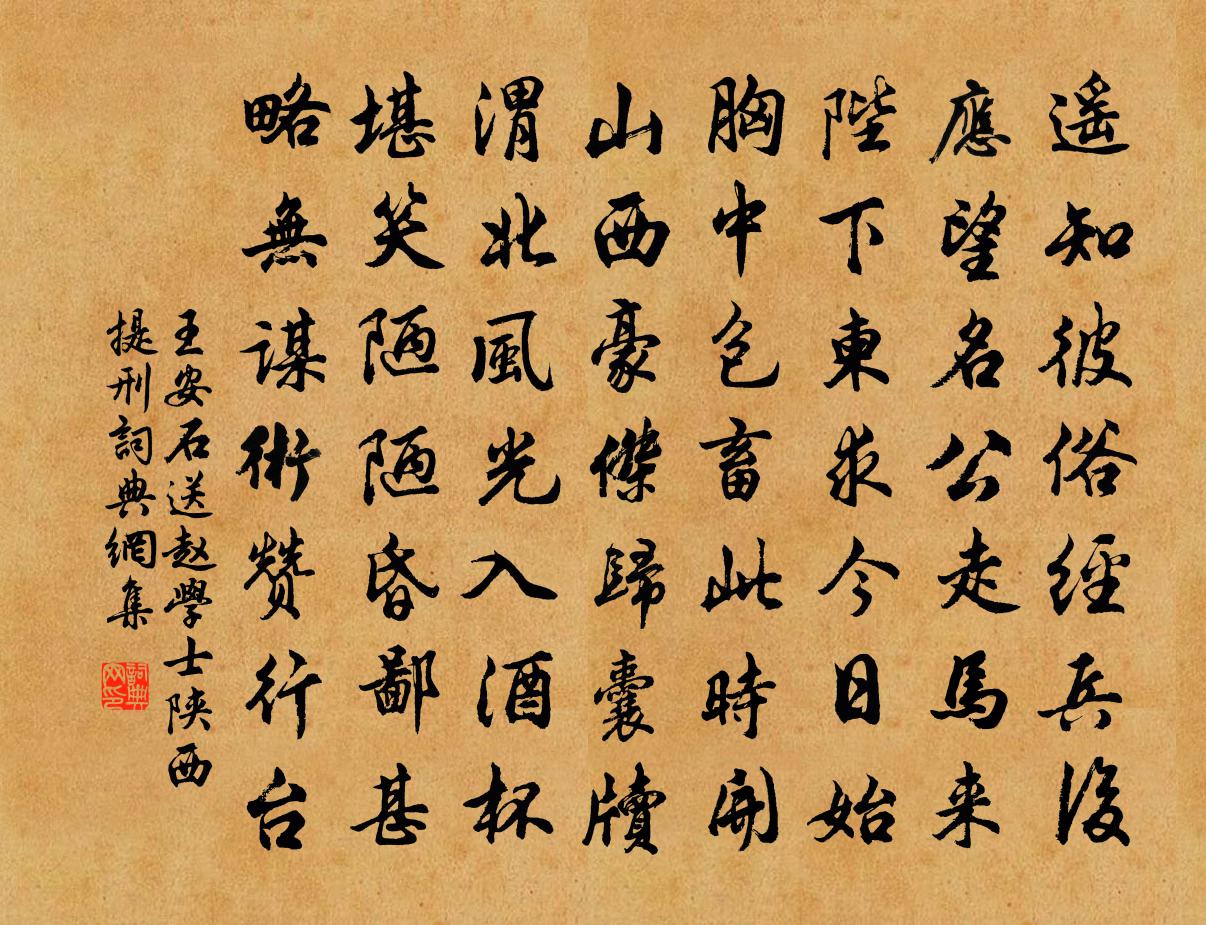 遥知彼俗經兵後
應望名公走馬来
陛下東求今日始
胸中包畜此時開
山西豪傑歸囊牘
渭北風光入酒杯
堪笑陋陋昏鄙甚
略無謀術贊行台
王安石送赵學士陕西
提刑詞典網集
詞典网印